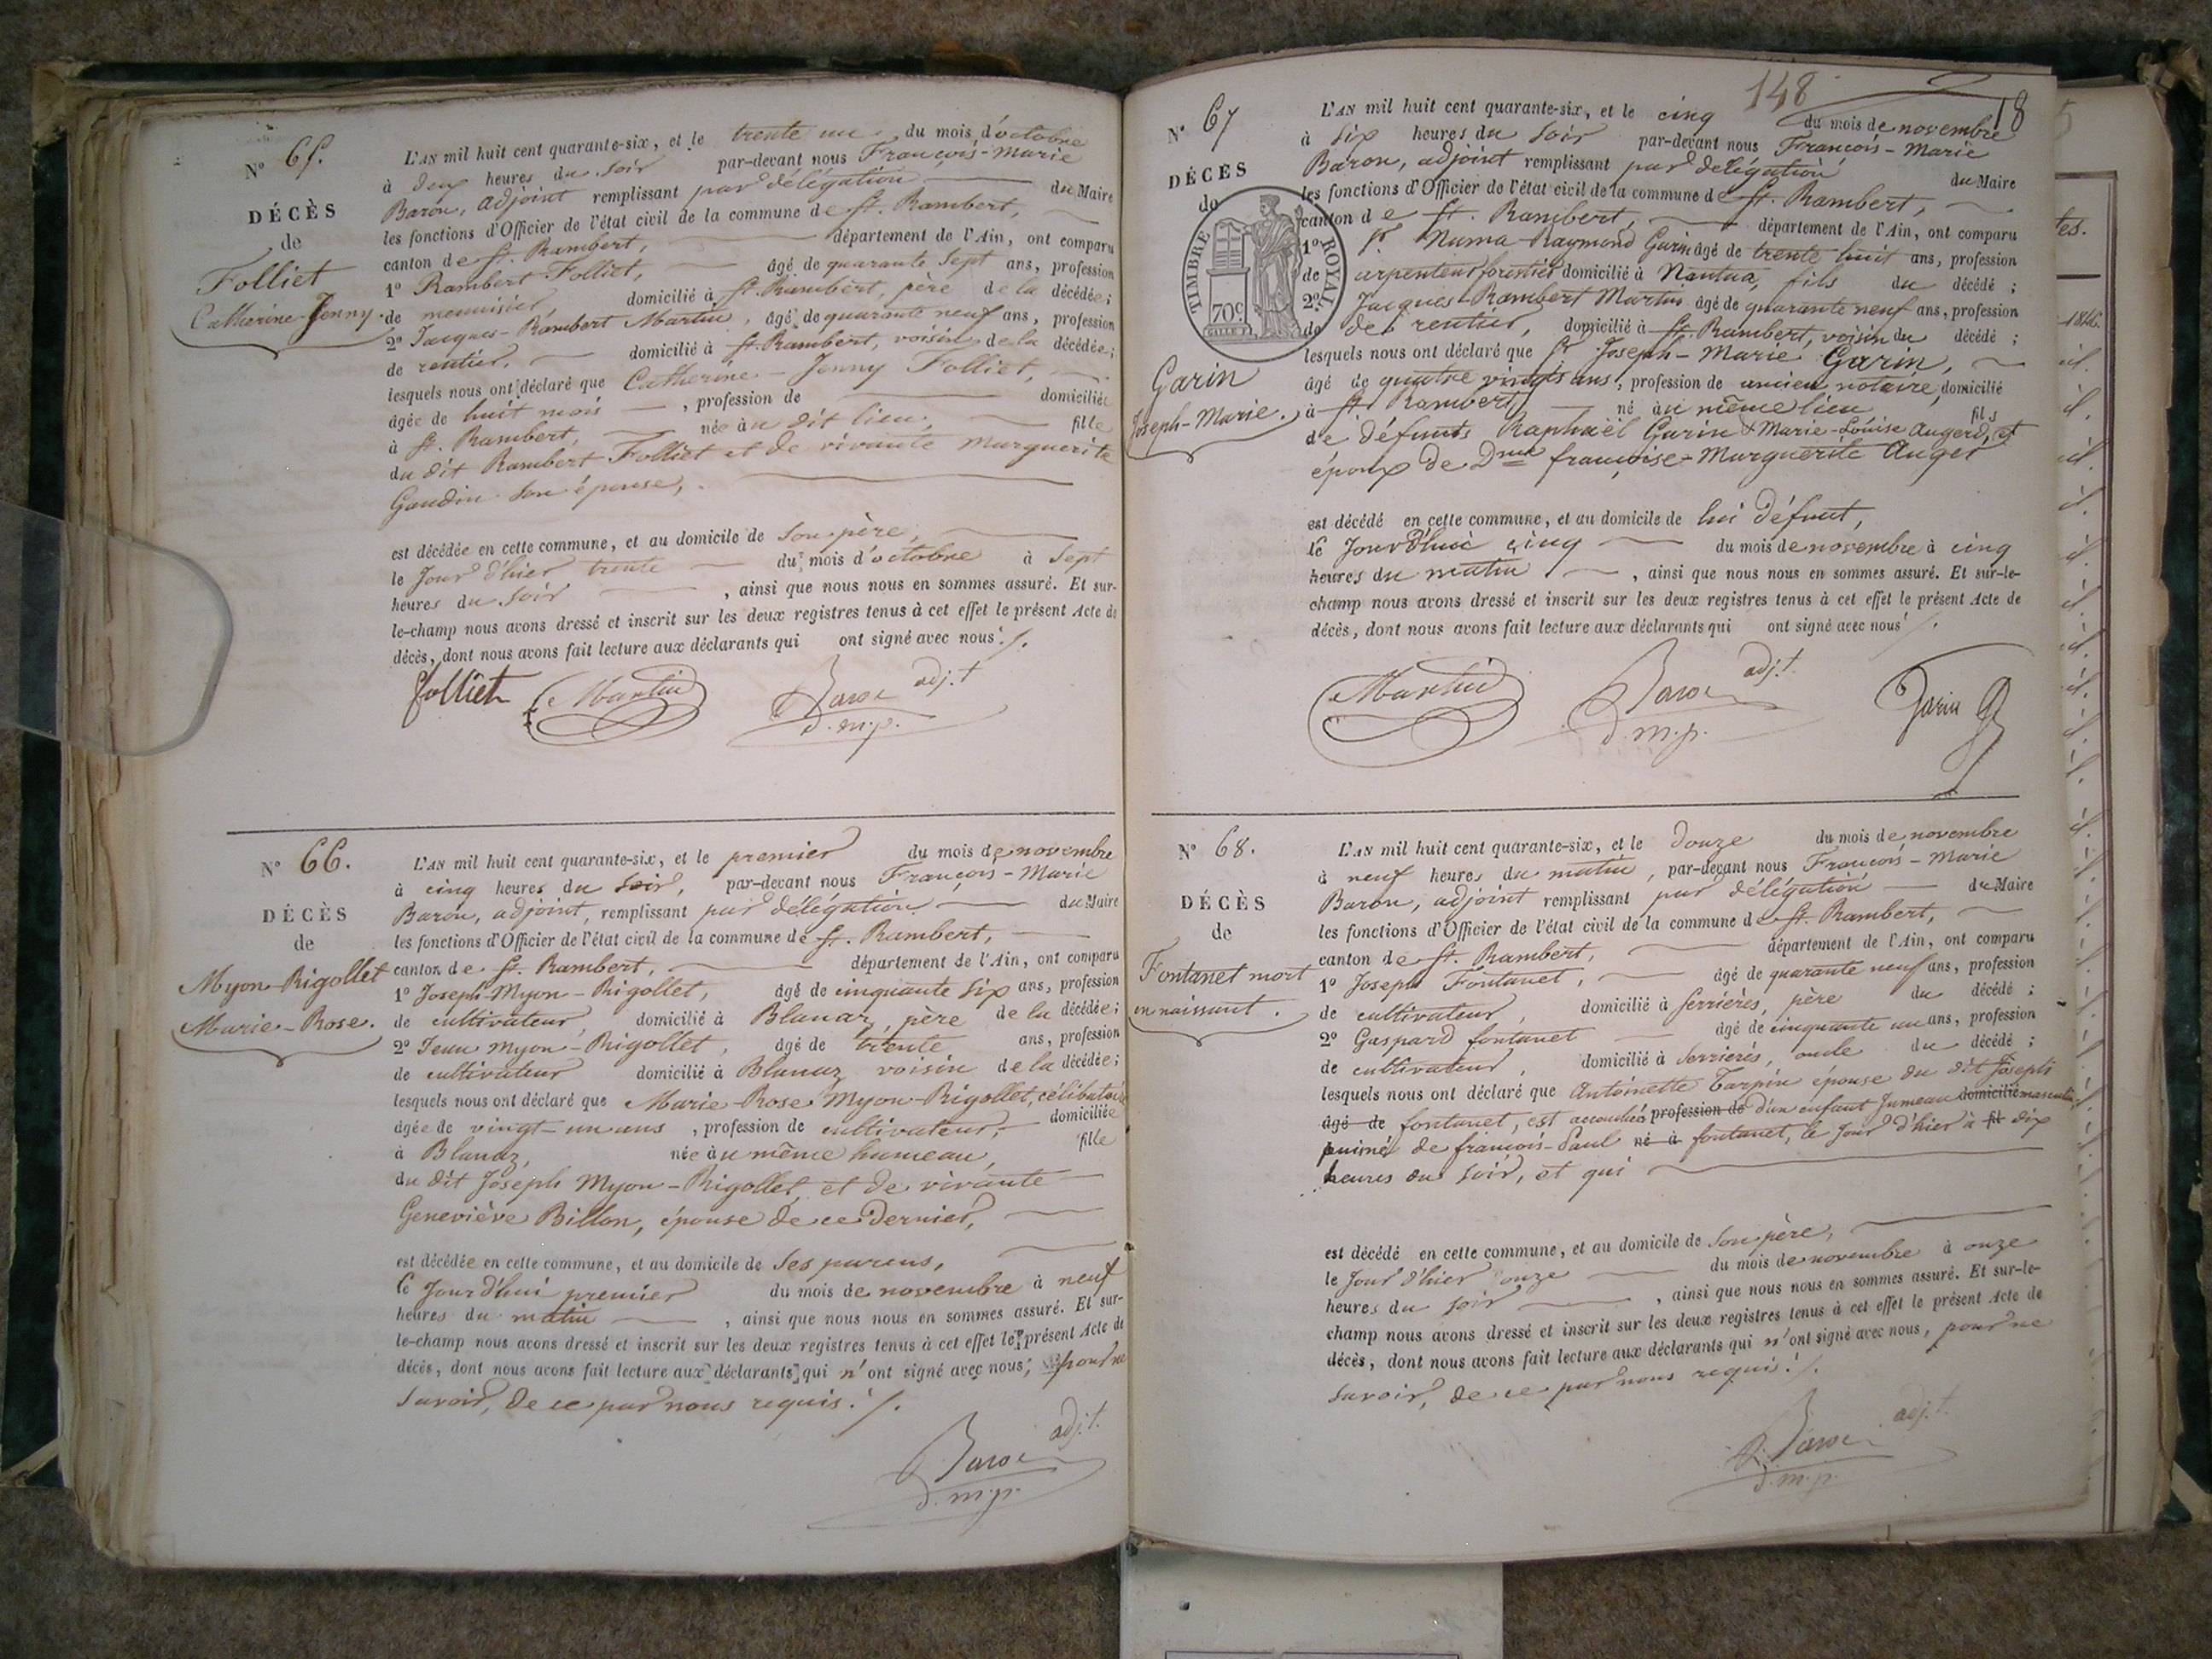 Nº 65.
DÉCÈS
de
Folliet
Catherine-Jenny.
L'AN mil huit cent quarante-six, et le trente un du mois d'octobre
à deux heures du soir par-devant nous François-Marie
Baron, adjoint remplissant par délégation du Maire
les fonctions d'Officier de l'état civil de la commune de St. Rambert,
canton de St. Rambert, département de l'Ain, ont comparu
1º Rambert Folliet, âgé de quarante sept ans, profession
de menuisier, domicilié à St. Rambert, père de la décédée;
2º Jacques-Rambert Martin, âgé de quarante neuf ans, profession
de rentier, domicilié à St. Rambert, voisin de la décédée;
lesquels nous ont déclaré que Catherine-Jenny Folliet,
âgée de huit mois, profession de domiciliée
à St. Rambert, née àu dit lieu, fille
du dit Rambert Folliet et de vivante Marguerite
Gaudin son épouse,
est décédée en cette commune, et au domicile de son père,
le Jour d'hier trente du mois d'octobre à sept
heures du soir, ainsi que nous nous en sommes assuré. Et sur-
le-champ nous avons dressé et inscrit sur les deux registres tenus à cet effet le présent Acte de
décès, dont nous avons fait lecture aux déclarants qui ont signé avec nous./.
Folliet Martin Baron adj.t
d.m.p.
Nº 66.
DÉCÈS
de
Myon-Rigollet
Marie-Rose.
L'AN mil huit cent quarante-six, et le premier du mois de novembre
à cinq heures du soir, par-devant nous François-Marie
Baron, adjoint, remplissant par délégation du Maire
les fonctions d'Officier de l'état civil de la commune de St. Rambert,
canton de St. Rambert, département de l'Ain, ont comparu
1º Joseph Myon-Rigollet, âgé de cinquante six ans, profession
de cultivateur, domicilié à Blanaz, père de la décédée;
2º Jean Myon-Rigollet, âgé de trente ans, profession
de cultivateur domicilié à Blanaz voisin de la décédée;
lesquels nous ont déclaré que Marie-Rose Myon-Rigollet, célibataire
âgée de vingt-un ans, profession de cultivateur, domiciliée
à Blanaz, née àu même hameau, fille
du dit Joseph Myon-Rigollet, et de vivante
Geneviève Billon, épouse de ce dernier,
est décédée en cette commune, et au domicile de ses parens,
le Jourd'hui premier du mois de novembre à neuf
heures du matin, ainsi que nous nous en sommes assuré. Et sur-
le-champ nous avons dressé et inscrit sur les deux registres tenus à cet effet le présent Acte de
décès, dont nous avons fait lecture aux déclarants qui n'ont signé avec nous, pour ne
savoir, de ce par nous requis./.
Baron adj.t
d.m.p.
148
18
Nº 67
DÉCÈS
de
TIMBRE ROYAL
70c
Garin
Joseph-Marie.
L'AN mil huit cent quarante-six, et le cinq du mois de novembre
à six heures du soir par-devant nous François-Marie
Baron, adjoint remplissant par délégation du Maire
les fonctions d'Officier de l'état civil de la commune de St. Rambert,
canton de St. Rambert, département de l'Ain, ont comparu
1º Sr Numa-Raymond Garin âgé de trente huit ans, profession
de arpenteur forestier domicilié à Nantua, fils du décédé;
2º Jacques-Rambert Martin âgé de quarante neuf ans, profession
de rentier, domicilié à St. Rambert, voisin du décédé;
lesquels nous ont déclaré que Sr Joseph-Marie Garin,
âgé de quatre vingts ans, profession de ancien notaire, domicilié
à St. Rambert, né àu même lieu fils
de défunts Raphaël Garin & Marie-Louise Augerd, et
époux de Dme françoise-Marguerite Auger
est décédé en cette commune, et au domicile de lui défunt,
le Jourd'hui cinq du mois de novembre à cinq
heures du matin, ainsi que nous nous en sommes assuré. Et sur-le-
champ nous avons dressé et inscrit sur les deux registres tenus à cet effet le présent Acte de
décès, dont nous avons fait lecture aux déclarants qui ont signé avec nous./.
Martin Baron adj.t Garin
d.m.p.
Nº 68.
DÉCÈS
de
Fontanet mort
en naissant.
L'AN mil huit cent quarante-six, et le douze du mois de novembre
à neuf heures du matin, par-devant nous François-Marie
Baron, adjoint remplissant par délégation du Maire
les fonctions d'Officier de l'état civil de la commune de St. Rambert,
canton de St. Rambert, département de l'Ain, ont comparu
1º Joseph Fontanet, âgé de quarante neuf ans, profession
de cultivateur, domicilié à serrières, père du décédé;
2º Gaspard fontanet âgé de cinquante un ans, profession
de cultivateur, domicilié à serrières, oncle du décédé;
lesquels nous ont déclaré que Antoinette Tarpin épouse du dit Joseph
âgé de fontanet, est accouchée profession de d'un enfant Jumeau domicilié masculin
puiné, de françois-Paul né à fontanet, le Jour d'hier à fil dix
heures du soir, et qui
est décédé en cette commune, et au domicile de son père,
le Jour d'hier onze du mois de novembre à onze
heures du soir, ainsi que nous nous en sommes assuré. Et sur-le-
champ nous avons dressé et inscrit sur les deux registres tenus à cet effet le présent Acte de
décès, dont nous avons fait lecture aux déclarants qui n'ont signé avec nous, pour ne
savoir, de ce par nous requis./.
Baron adj.t
d.m.p.
tes.
1846.